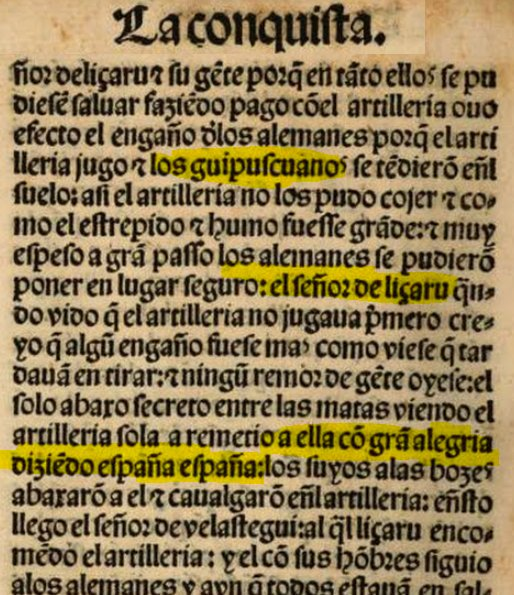 La conquista.
ñor deliçaru ⁊ su gẽte porq̃ en tãto ellos se pu
diesẽ saluar faziẽdo pago cõel artilleria ouo
efecto el engaño d̃los alemanes porq̃ el arti
lleria jugo ⁊ los guipuscuanos se tẽdierõ eñl
suelo: asi el artilleria no los pudo cojer ⁊ co-
mo el estrepido ⁊ humo fuesse grãde: ⁊ muy
espeso a grã passo los alemanes se pudierõ
poner en lugar seguro: el señor de liçaru q̃n-
do vido q̃ el artilleria no jugaua p̃mero cre-
yo q̃ algũ engaño fuese mas como viese q̃ tar
dauã en tirar: ⁊ ningũ remor de gẽte oyese: el
solo abaxo secreto entre las matas viendo el
artilleria sola a remetio a ella cõ grã alegria
diziẽdo españa españa: los suyos alas bozes
abaxarõ a el ⁊ caualgarõ eñl artilleria: eñsto
llego el señor de velastegui: al q̃l liçaru enco-
mẽdo el artilleria: y el cõ sus hõbres siguio
alos alemanes y ayn q̃ todos estauã en sal-